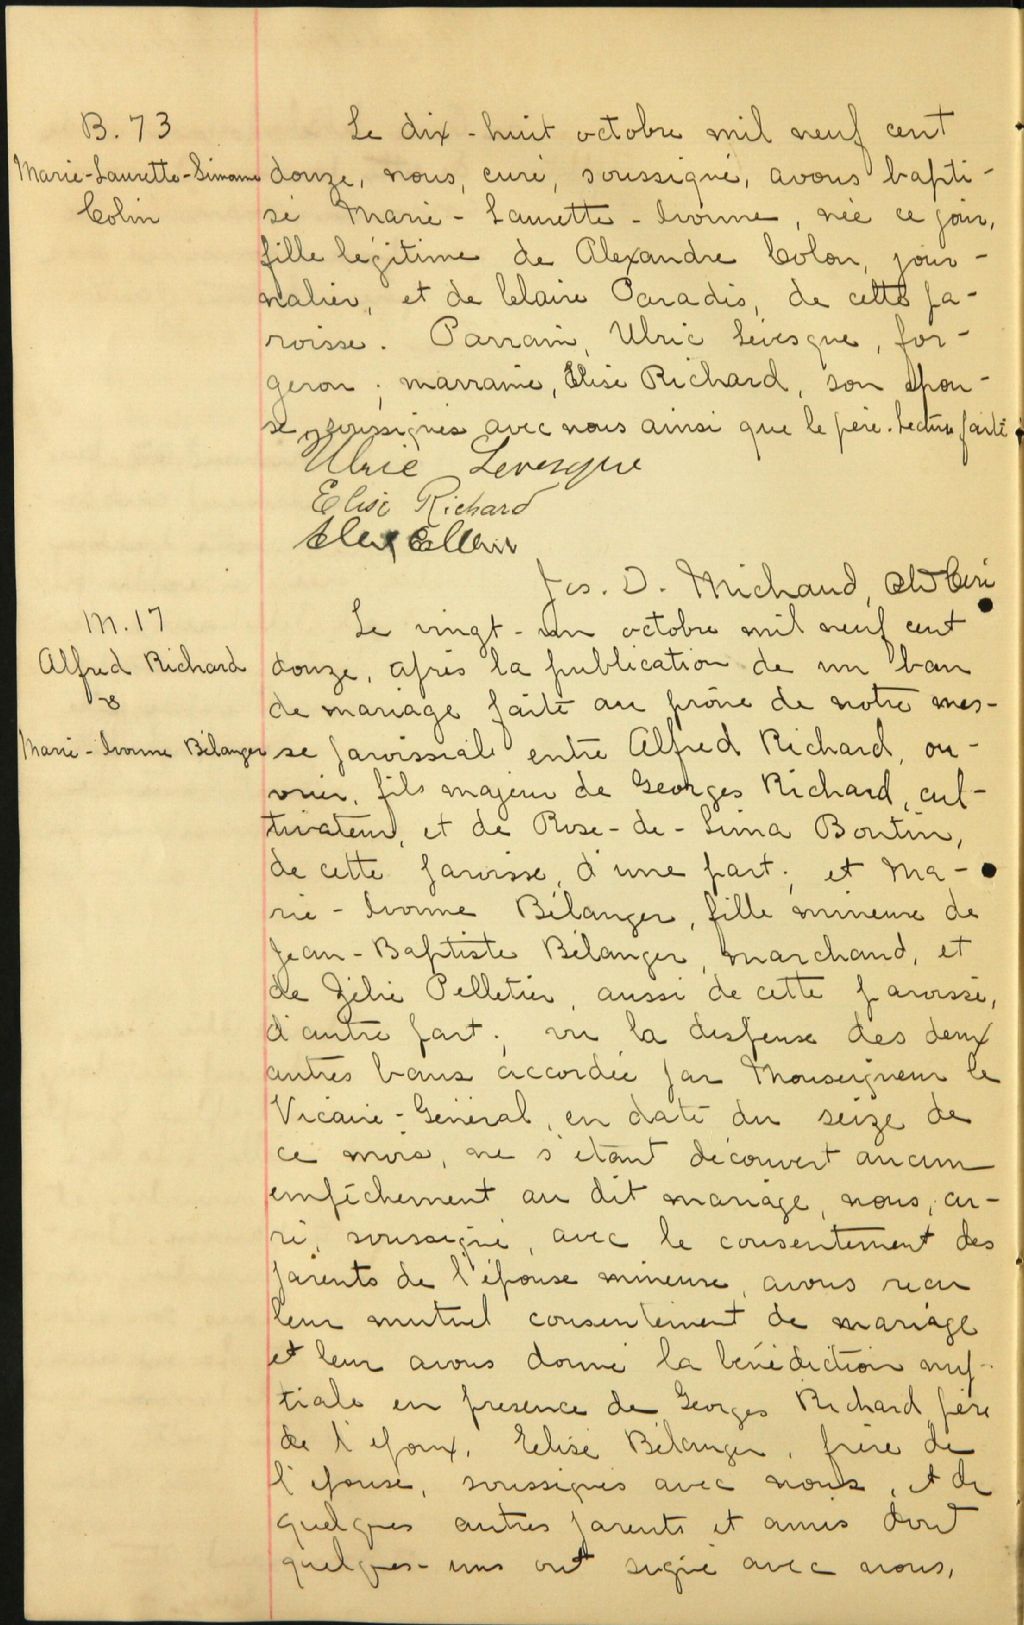 B. 73
Marie-Laurette-Simonne
Colin
Le dix-huit octobre mil neuf cent
douze, nous, curé, soussigné, avons bapti-
sé Marie-Laurette-Ivonne, née ce jour,
fille légitime de Alexandre Colon, jour-
nalier, et de Claire Paradis, de cette pa-
roisse. Parrain, Ulric Lévesque, for-
geron; marraine, Elise Richard, son épou-
se, soussignés avec nous ainsi que le père. Lecture faite
Ulric Levesque
Elise Richard
Alex
Jos. D. Michaud, Ptr Curé
M. 17
Alfred Richard
&
Marie-Ivonne Bélanger
Le vingt-un octobre mil neuf cent
douze, après la publication de un ban
de mariage faite au prône de notre mes-
se paroissiale entre Alfred Richard, ou-
vrier, fils majeur de Georges Richard, cul-
tivateur, et de Rose-de-Lima Boutin,
de cette paroisse, d'une part; et Ma-
rie-Ivonne Bélanger, fille mineure de
Jean-Baptiste Bélanger, marchand, et
de Zélie Pelletier, aussi de cette paroisse,
d'autre part; vu la dispense des deux
autres bans accordée par Monseigneur le
Vicaire-Général, en date du seize de
ce mois, ne s'étant découvert aucun
empêchement au dit mariage, nous, cu-
ré, soussigné, avec le consentement des
parents de l'épouse mineure, avons reçu
leur mutuel consentement de mariage
et leur avons donné la bénédiction nup-
tiale en présence de Georges Richard, père
de l'époux, Elisé Bélanger, frère de
l'épouse, soussignés avec nous, et de
quelques autres parents et amis dont
quelques-uns ont signé avec nous,